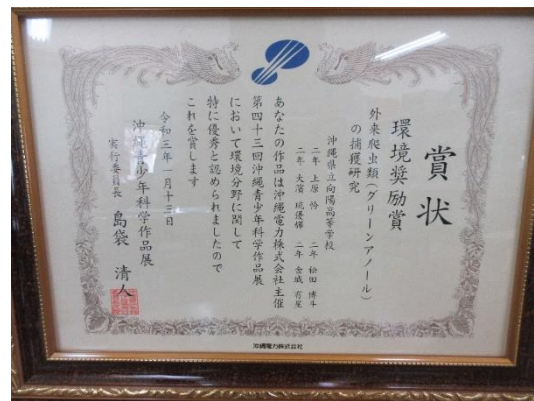 賞状
環境奨励賞
外来爬虫類(グリーンアノール)
の捕獲研究
沖縄県立向陽高等学校
二年 上原 怜 二年 松田 博斗
二年 大濵 琉 二年 金城 有星
あなたの作品は沖縄電力株式会社主催
第四十三回沖縄青少年科学作品展
において環境分野に関して
特に優秀と認められましたので
これを賞します
令和三年一月十三日
沖縄青少年科学作品展
実行委員長 島袋 清人
沖縄電力株式会社